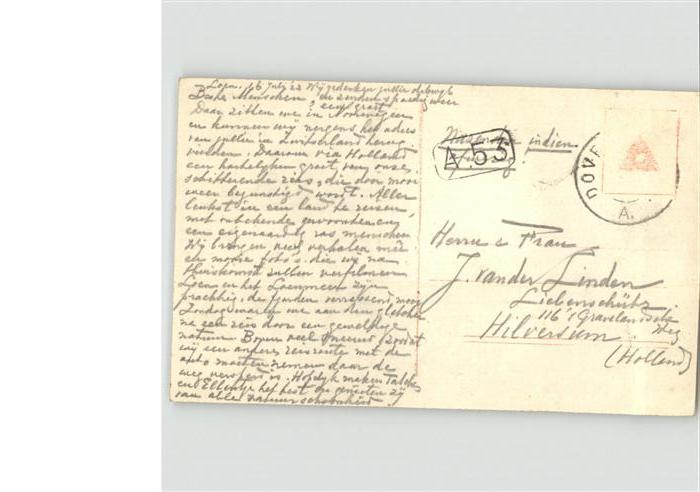 Loen. 16 July 22 Wij gedenken jullie
Beste Menschen, en zenden
een groet
Daar zitten we in Noorwegen
en kunnen wij nergens het adres
van jullie in Zwitserland terug
vinden. Daarom via Holland
een hartelijken groet van onze
schitterende reis, die door mooi
weer begunstigd wordt. Aller
in een land te reizen,
met onbekende gewoonten en
een eigenaardig ras menschen
Wij brengen veel verhalen mee
en mooie foto's die we na
thuiskomst zullen
Loen en het Loenmeer zijn
prachtig, de fjorden verrassend mooi
Zondag waren we aan den gletscher
na een reis door een geweldige
natuur. Boven veel sneeuw, zoodat
wij een andere reisroute met de
auto moesten nemen daar de
weg versperd is. maken
en het best en genieten zij
van alle natuurschoonheid
indien
A.53
DOVE
A.
Herrn & Frau
J. van der Linden
Liebenschütz
116 's Gravelandsche
Weg
Hilversum
(Holland)